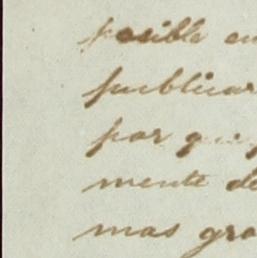 posible en
publicar
por qu
mente de
mas gra